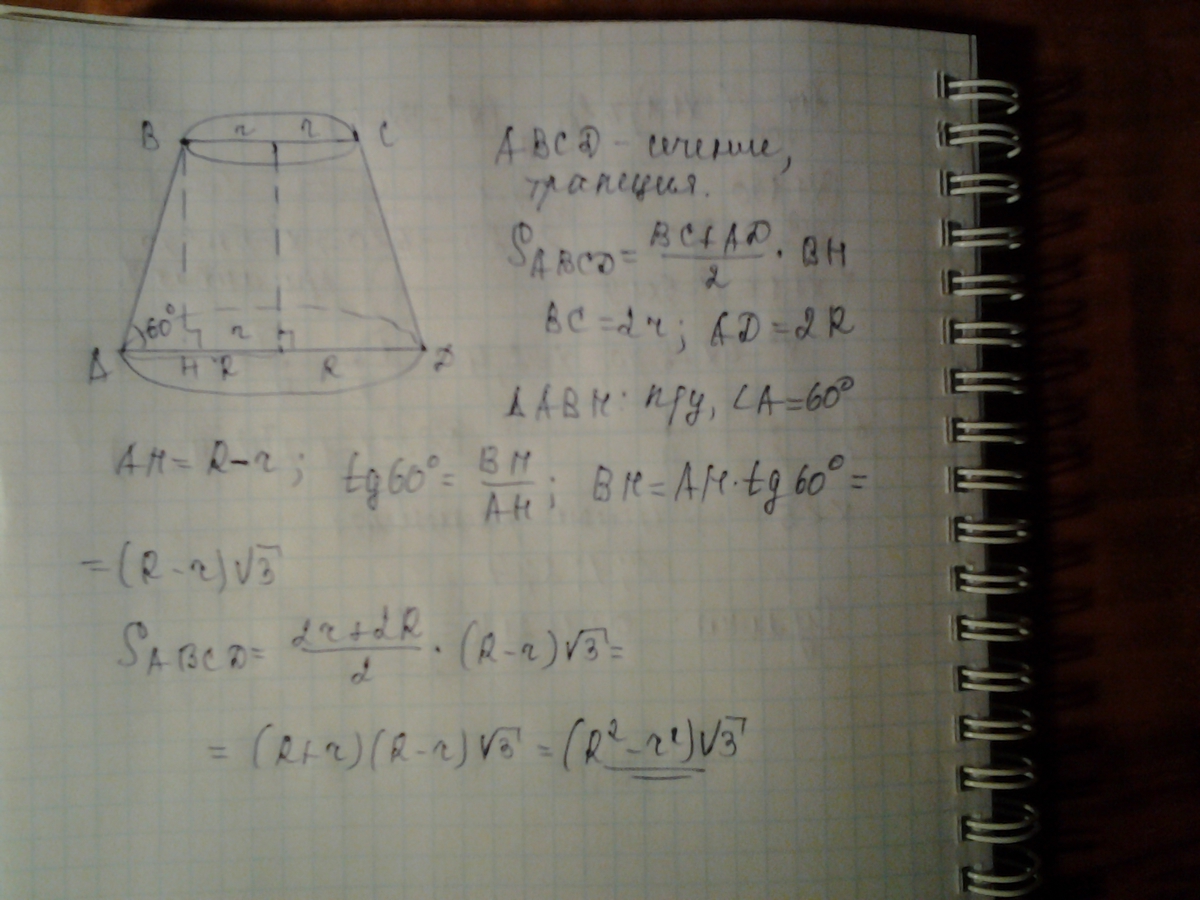 B r r C
60° r
A H R R D
ABCD – сечение,
трапеция.
S_ABCD = (BC+AD)/2 · BH
BC = 2r; AD = 2R
ΔABH: п/у, ∠A=60°
AH = R−r; tg60° = BH/AH; BH = AH·tg60° =
= (R−r)√3
S_ABCD = (2r+2R)/2 · (R−r)√3 =
= (R+r)(R−r)√3 = (R²−r²)√3